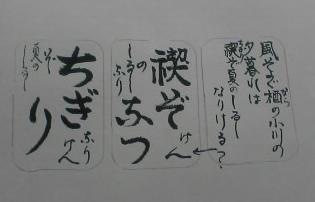 風そよぐ楢の小川の
夕暮れは
禊ぞ夏のしるし
なりける
禊ぞ
けん
なつ
のしるし
なり
ちぎり
なり
けん
ぞ
夏の
しるし